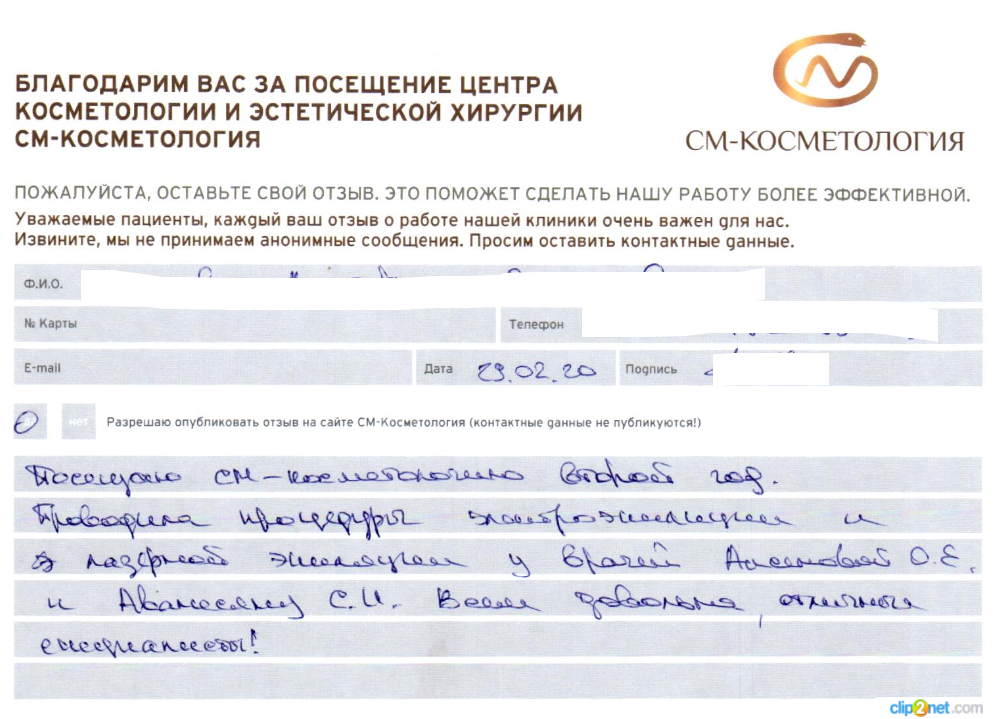 БЛАГОДАРИМ ВАС ЗА ПОСЕЩЕНИЕ ЦЕНТРА
КОСМЕТОЛОГИИ И ЭСТЕТИЧЕСКОЙ ХИРУРГИИ
СМ-КОСМЕТОЛОГИЯ
СМ-КОСМЕТОЛОГИЯ
ПОЖАЛУЙСТА, ОСТАВЬТЕ СВОЙ ОТЗЫВ. ЭТО ПОМОЖЕТ СДЕЛАТЬ НАШУ РАБОТУ БОЛЕЕ ЭФФЕКТИВНОЙ.
Уважаемые пациенты, каждый ваш отзыв о работе нашей клиники очень важен для нас.
Извините, мы не принимаем анонимные сообщения. Просим оставить контактные данные.
Ф.И.О.
№ Карты Телефон
E-mail Дата 29.02.20 Подпись
нет Разрешаю опубликовать отзыв на сайте СМ-Косметология (контактные данные не публикуются!)
Посещаю СМ-косметологию второй год.
Проводила процедуры электроэпиляции и
лазерной эпиляции у врачей Аксеновой О.Е.
и Аванесянц С.И. Всем довольна, отличные
специалисты!
clip2net.com